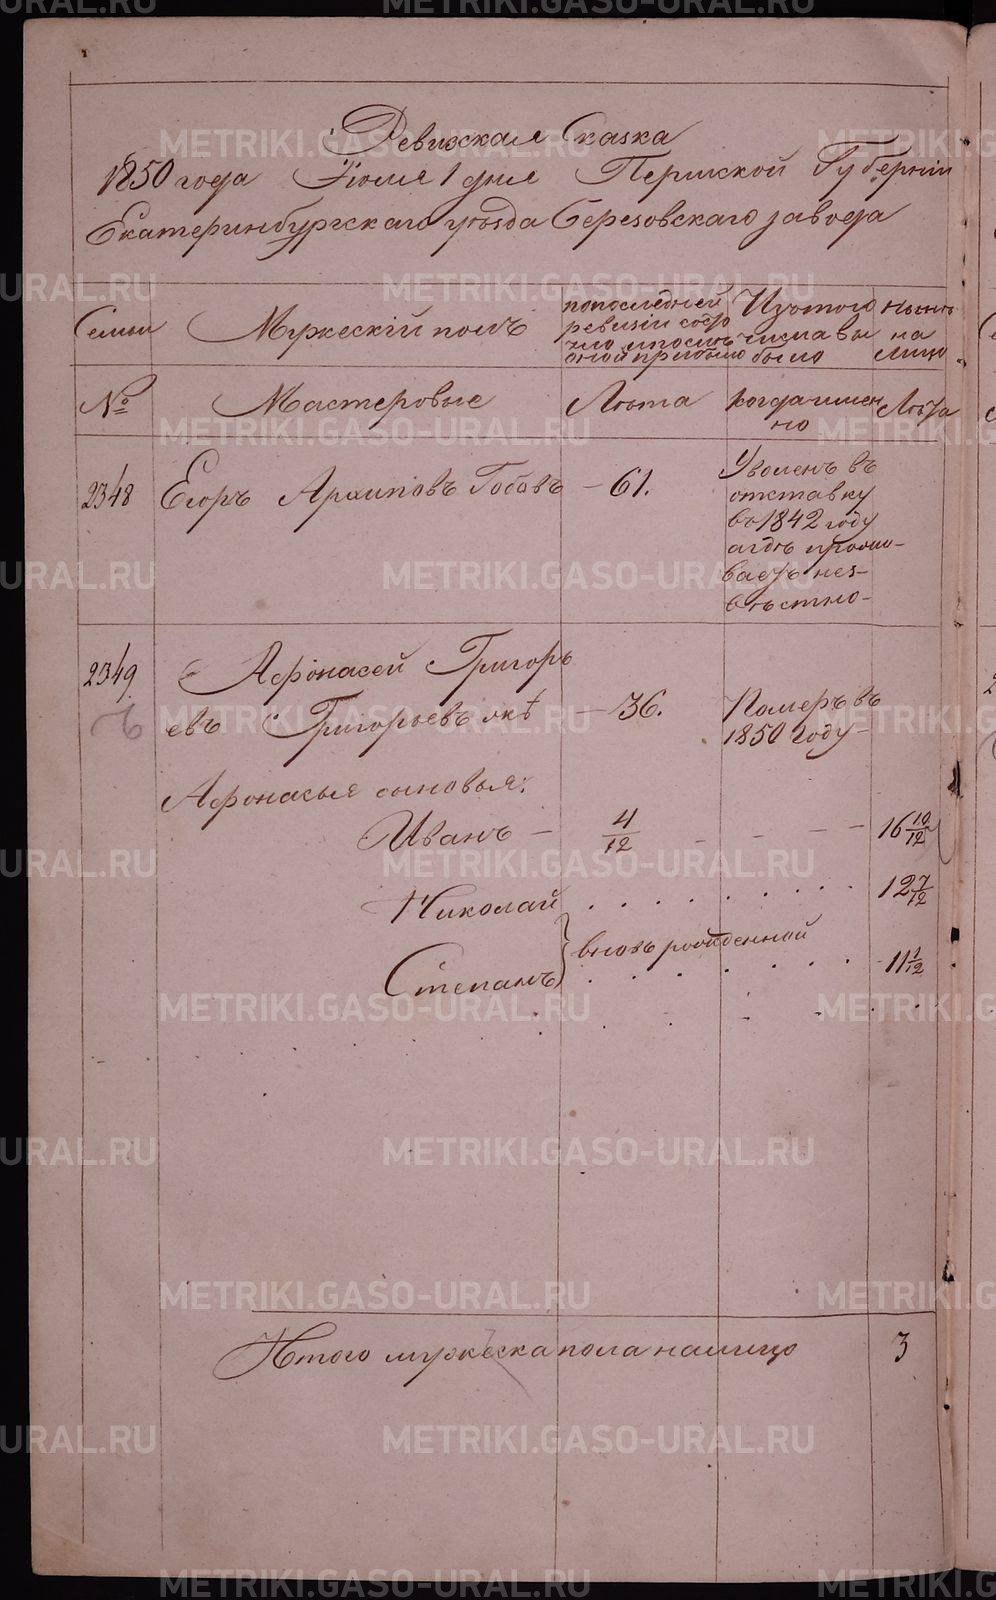 Ревижская Сказка
1850 года Июля 1 дня Пермской Губернiи
Екатеринбургскаго уѣзда Березовскаго завода
Семьи
Мужескiй полъ
попоследней
ревизiи состо
яло
Изътого
числа вы
было
Нынѣ
на
лицо
№
Мастеровые
Лѣта
Когда имен
но
Лѣта
2348
Егоръ Архиповъ Гобовъ
- 61.
Уволенъ въ
отставку
въ 1842 году
агдѣ прожи-
ваетъ неиз-
вѣстно-
2349
Афонасей Григорь
евъ Григорьевъ
- 36.
Померъ въ
1850 году-
Афонасья сыновья:
Иванъ -
4/12
16 10/12
Николай
12 7/12
вновь рожденной
Степанъ
11 1/12
Итого мужеска пола налицо
3
METRIKI.GASO-URAL.RU